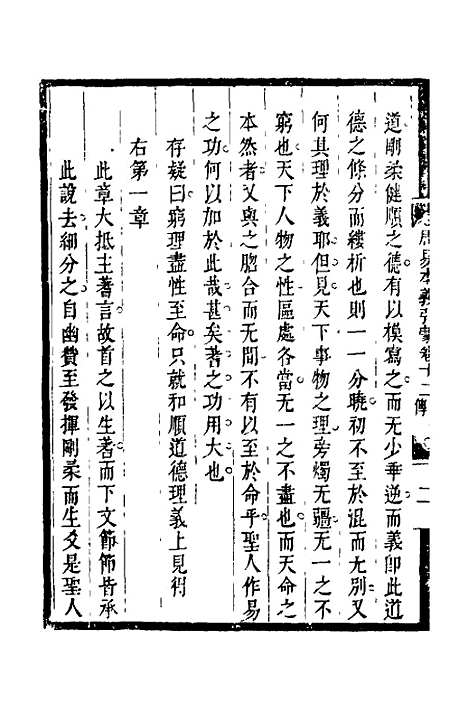 周易本義引蒙卷十二 傳
道剛柔健順之德有以模寫之而无少乖逆而義卽此道
德之條分而縷析也則一一分曉初不至於混而无別又
何其理於義耶但見天下事物之理旁燭无疆无一之不
窮也天下人物之性區處各當无一之不盡也而天命之
本然者又與之脗合而无間不有以至於命乎聖人作易
之功何以加於此哉甚矣蓍之功用大也
存疑曰窮理盡性至命只就和順道德理義上見得
右第一章
此章大抵主蓍言故首之以生蓍而下文節節皆承
此說去細分之自幽贊至發揮剛柔而生爻是聖人